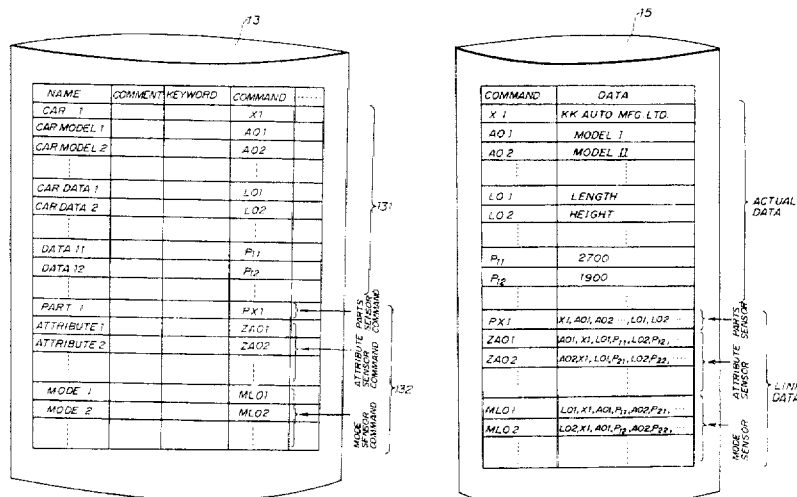 13
NAME COMMENT KEYWORD COMMAND ......
CAR 1 X1
CAR MODEL 1 A01
CAR MODEL 2 A02
CAR DATA 1 L01
CAR DATA 2 L02
DATA 11 P11
DATA 12 P12
PART 1 PX1
ATTRIBUTE 1 ZA01
ATTRIBUTE 2 ZA02
MODE 1 ML01
MODE 2 ML02
131
132
PARTS SENSOR COMMAND
ATTRIBUTE SENSOR COMMAND
MODE SENSOR COMMAND
15
COMMAND DATA
X1 KK AUTO MFG. LTD.
A01 MODEL I
A02 MODEL II
L01 LENGTH
L02 HEIGHT
P11 2700
P12 1900
PX1 X1, A01, A02 ..., L01, L02 ...
ZA01 A01, X1, L01, P11, L02, P12, ...
ZA02 A02, X1, L01, P21, L02, P22, ...
ML01 L01, X1, A01, P11, A02, P21, ...
ML02 L02, X1, A01, P12, A02, P22, ...
ACTUAL DATA
PARTS SENSOR
ATTRIBUTE SENSOR
MODE SENSOR
DATA